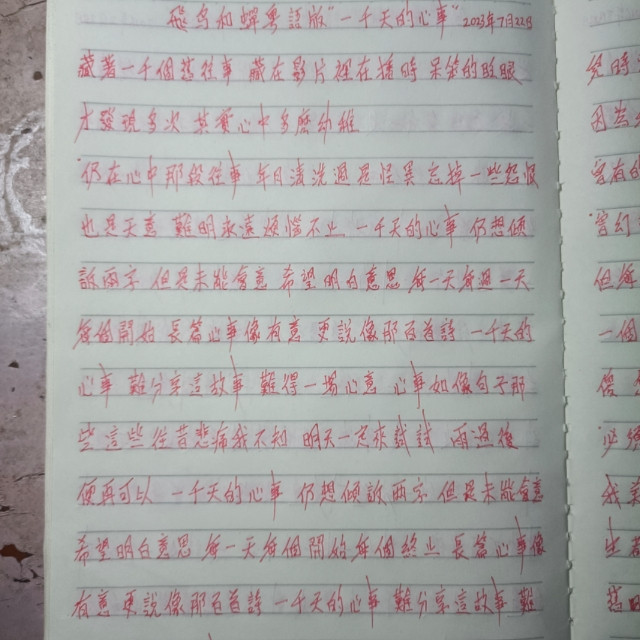 飛鳥和蟬粵語版"一千天的心事" 2023年7月22日
藏著一千個舊往事 藏在影片裡在播時 呆笨的睜眼 終時
才發現多次 其實心中多麼幼稚
仍在心中那段往事 年月清洗過是怪異 忘掉一些怨恨
也是天意 難明永遠煩惱不止 一千天的心事 仍想傾
訴兩字 但是未能會意 希望明白意思 每一天每過一天
每個開始 長篇心事像有意 更說像那百首詩 一千天的 一個
心事 難分享這故事 難得一場心意 心事如像句子那
些這些往昔悲痛我不知 明天一定來試試 雨過後
便再可以 一千天的心事 仍想傾訴兩字 但是未能會意
希望明白意思 每一天每個開始每個終止 長篇心事像
有意 更說像那百首詩 一千天的心事 難分享這故事 難